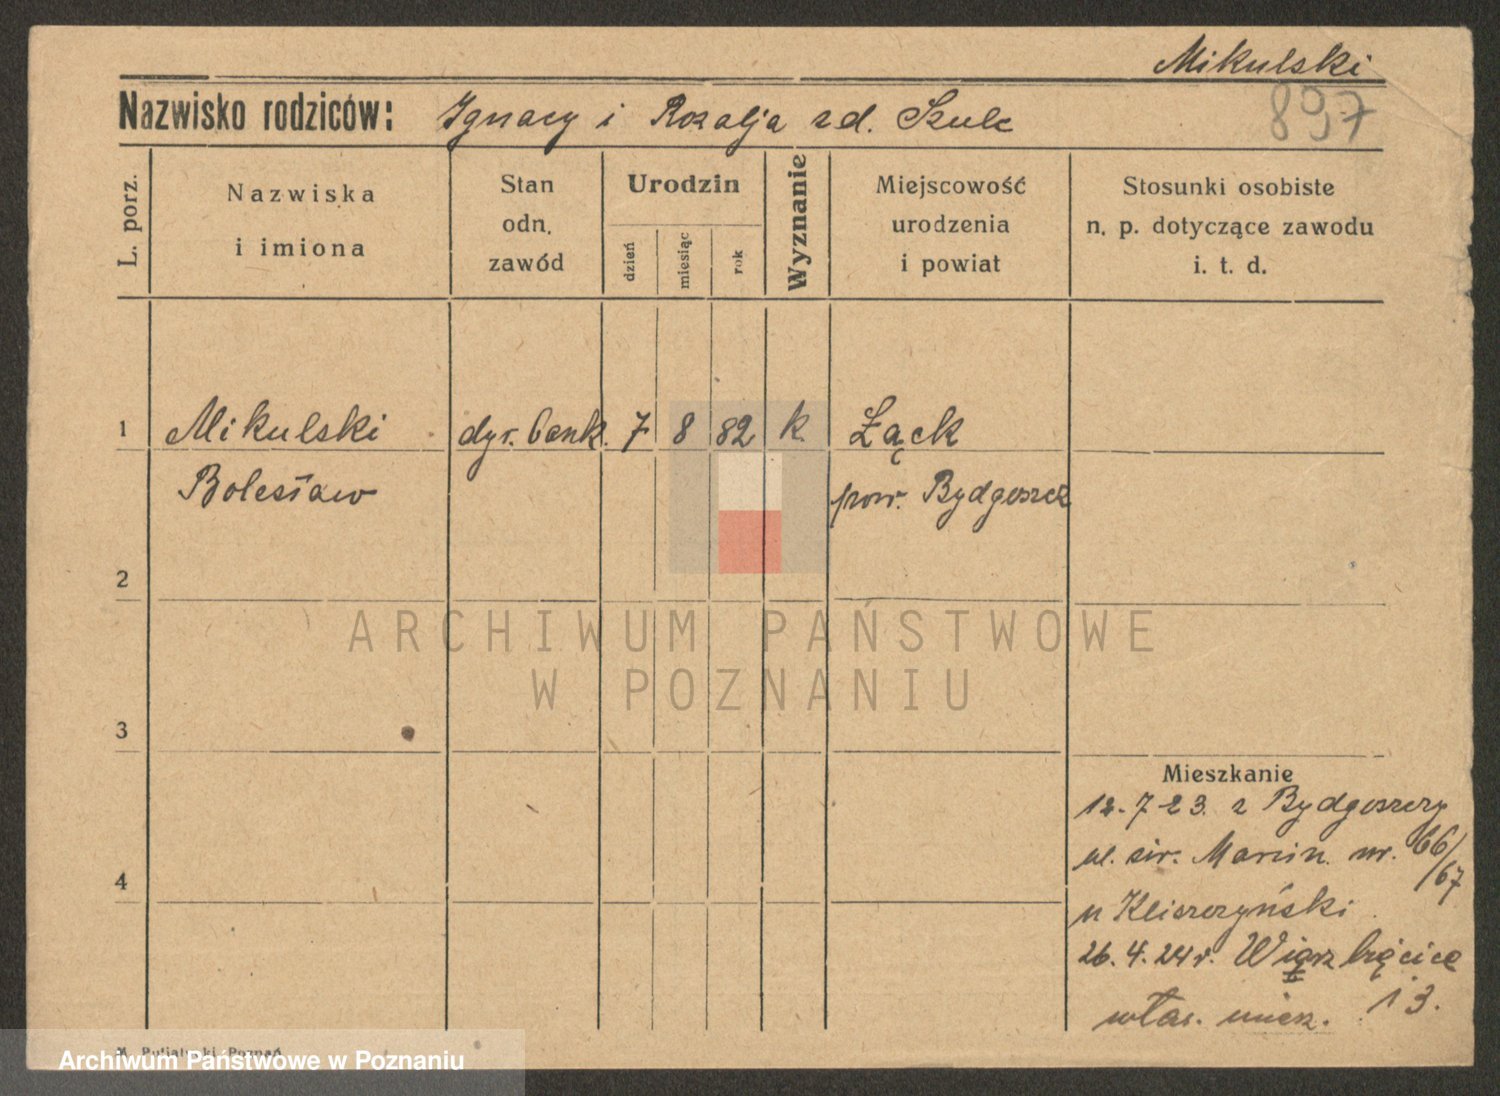 Mikulski
897
Nazwisko rodziców: Ignacy i Rozalja zd. Szulc
L. porz.
Nazwiska
i imiona
Stan
odn.
zawód
Urodzin
dzień
miesiąc
rok
Wyznanie
Miejscowość
urodzenia
i powiat
Stosunki osobiste
n. p. dotyczące zawodu
i. t. d.
1 Mikulski dyr. bank. 7 8 82 k. Łąck
Bolesław pow. Bydgoszcz
2
ARCHIWUM PAŃSTWOWE
W POZNANIU
3
Mieszkanie
12.7.23. z Bydgoszczy
ul. św. Marcin. nr. 66/67
4
u Kliszczyński
26.4.24r. Wierzbięcice
13.
włas. miesz.
Poznań
Archiwum Państwowe w Poznaniu